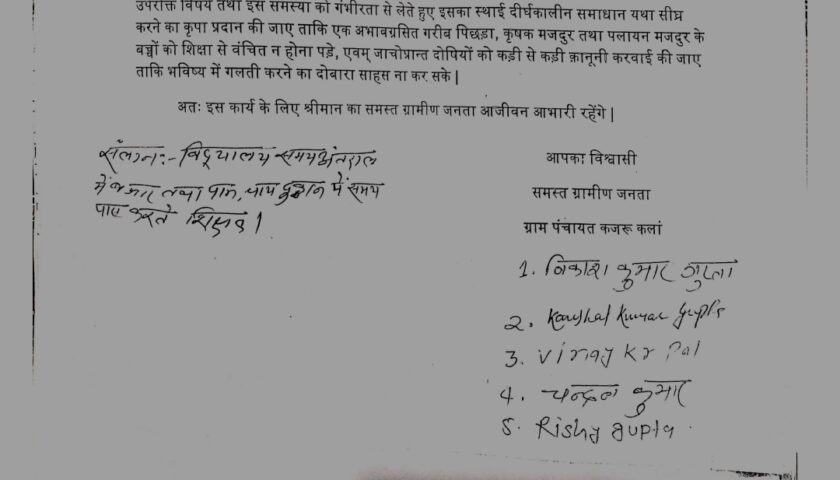 उपरोक्त विषय तथा इस समस्या को गंभीरता से लेते हुए इसका स्थाई दीर्घकालीन समाधान यथा सीघ्र
करने का कृपा प्रदान की जाए ताकि एक अभावग्रसित गरीब पिछड़ा, कृषक मजदुर तथा पलायन मजदुर के
बच्चों को शिक्षा से वंचित न होना पड़े, एवम् जाचोप्रान्त दोषियों को कड़ी से कड़ी क़ानूनी करवाई की जाए
ताकि भविष्य में गलती करने का दोबारा साहस ना कर सके |
अतः इस कार्य के लिए श्रीमान का समस्त ग्रामीण जनता आजीवन आभारी रहेंगे |
संलग्न:- विद्यालय समय अंतराल
में तथा पान, चाय दुकान में समय
पास करते शिक्षक ।
आपका विश्वासी
समस्त ग्रामीण जनता
ग्राम पंचायत कजरू कलां
1. विकाश कुमार गुप्ता
2. Kaushal Kumar Gupta
3. Vinay Kr Pal
4. चन्दन कुमार
5. Rishu Gupta